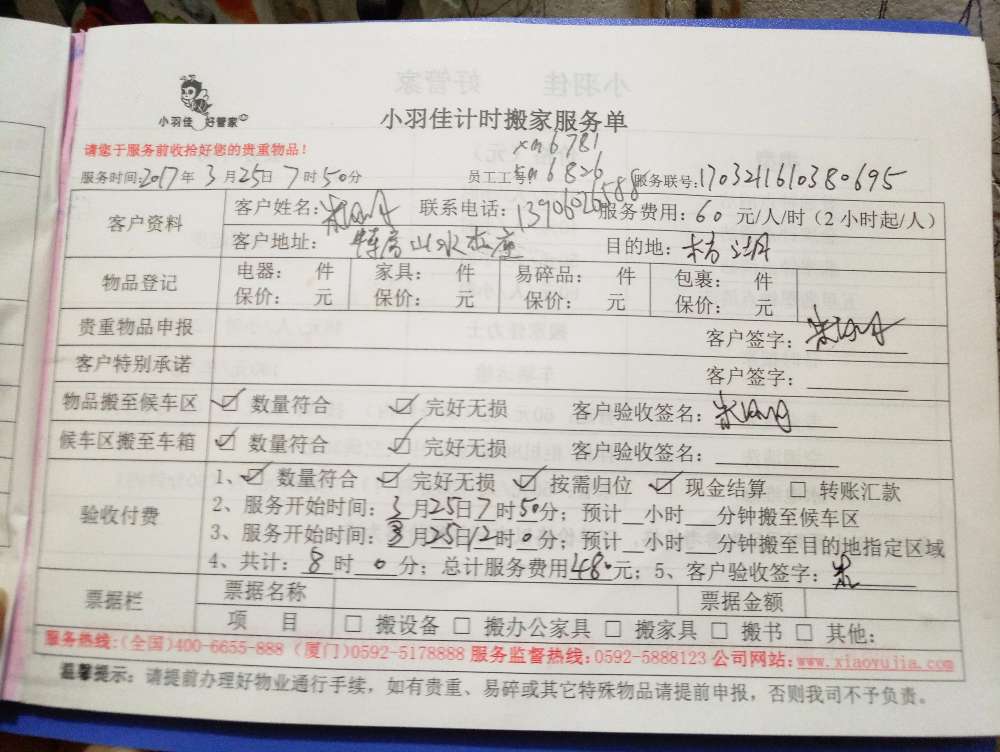 小羽佳 好管家
小羽佳计时搬家服务单
请您于服务前收拾好您的贵重物品！
xm6781
服务时间:2017年3月25日7时50分 员工工号: xm6826 服务联号:1703211610380695
客户资料 客户姓名: 联系电话:13906026588 服务费用:60元/人/时（2小时起/人）
客户地址: 特房山水杰座 目的地:杨湖
物品登记 电器: 件 家具: 件 易碎品: 件 包裹: 件
保价: 元 保价: 元 保价: 元 保价: 元
贵重物品申报 客户签字:
客户特别承诺 客户签字:
物品搬至候车区 ☑ 数量符合 ☑ 完好无损 客户验收签名:
候车区搬至车箱 ☑ 数量符合 ☑ 完好无损 客户验收签名:
验收付费 1、☑ 数量符合 ☑ 完好无损 ☑ 按需归位 ☑ 现金结算 □ 转账汇款
2、服务开始时间:3月25日7时50分；预计__小时___分钟搬至候车区
3、服务开始时间:3月25日12时0分；预计__小时___分钟搬至目的地指定区域
4、共计:8时0分；总计服务费用480元；5、客户验收签字:
票据栏 票据名称 票据金额
项 目 □ 搬设备 □ 搬办公家具 □ 搬家具 □ 搬书 □ 其他:
服务热线:(全国)400-6655-888 (厦门)0592-5178888 服务监督热线:0592-5888123 公司网站:www.xiaoyujia.com
温馨提示: 请提前办理好物业通行手续，如有贵重、易碎或其它特殊物品请提前申报，否则我司不予负责。